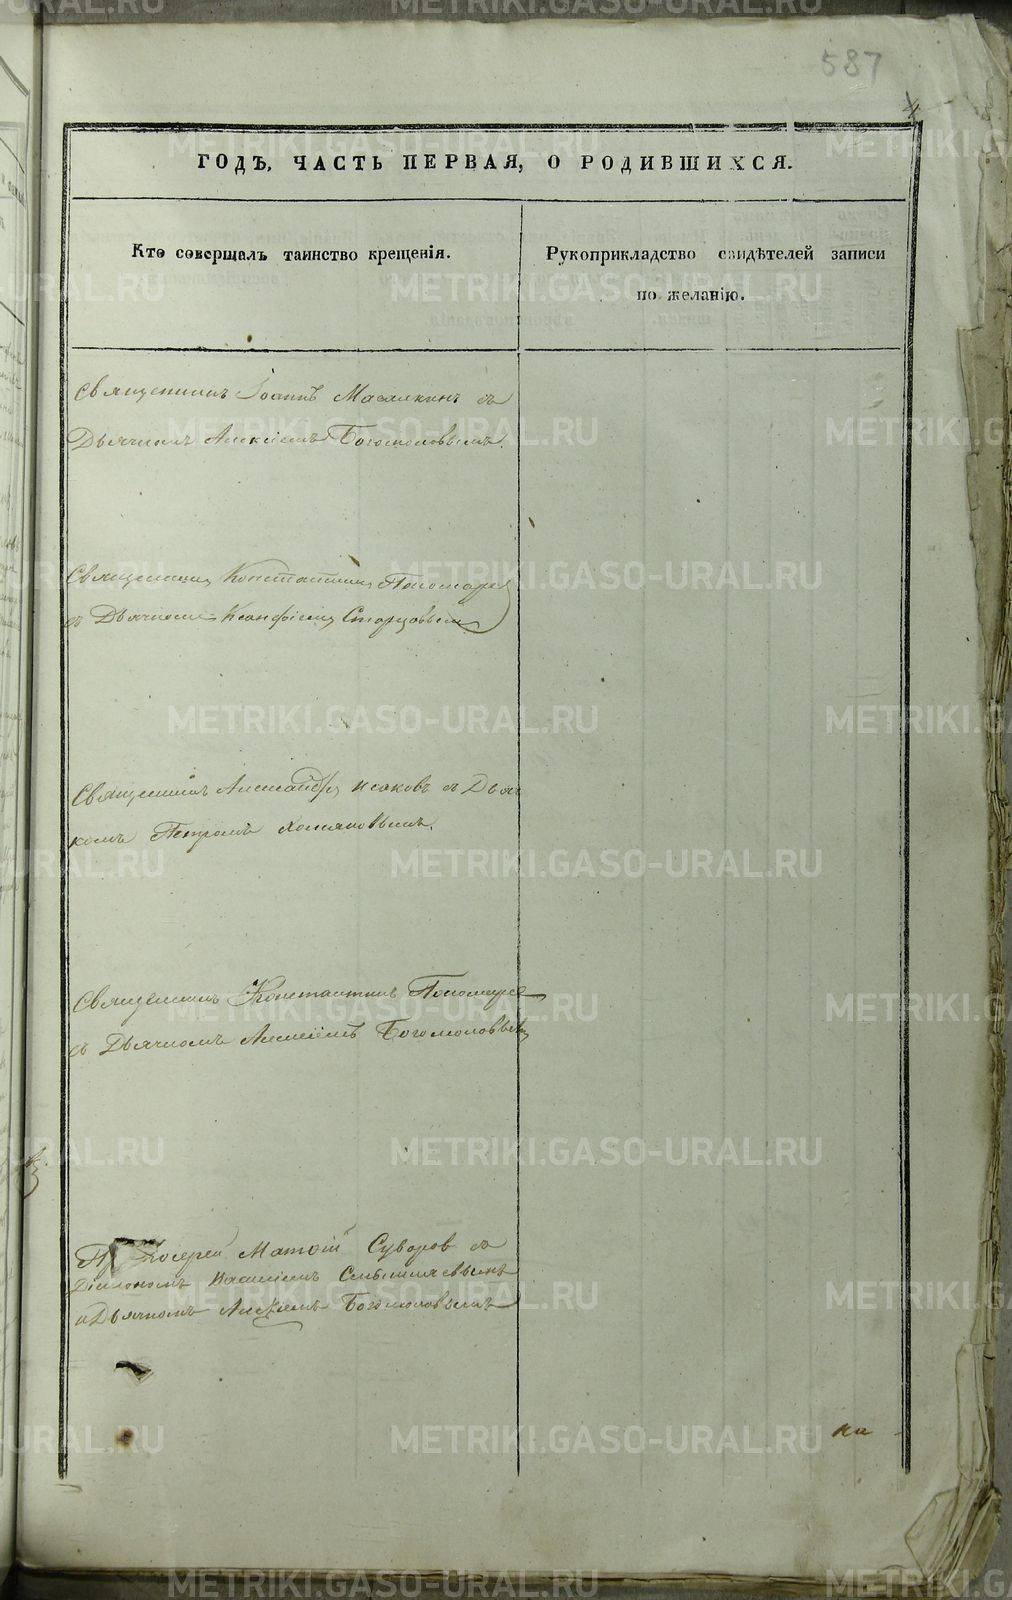 587
4
ГОДЪ, ЧАСТЬ ПЕРВАЯ, О РОДИВШИХСЯ.
Кто совершалъ таинство крещенія.
Рукоприкладство свидѣтелей записи
по желанію.
Священникъ Іоаннъ Масалкинъ съ
Дьячкомъ Алексіемъ Богомоловымъ.
Священникъ Константинъ Пономаре
съ Дьячкомъ Ксанфіемъ Старцовымъ
Священникъ Александръ Исаковъ съ Дья
комъ Петромъ Хомяковымъ.
Священникъ Константинъ Пономаре
съ Дьячкомъ Алексіемъ Богомоловымъ
Матѳій Суворов съ
Діакономъ
и Дьячкомъ Алексіемъ Богомоловымъ
METRIKI.GASO-URAL.RU